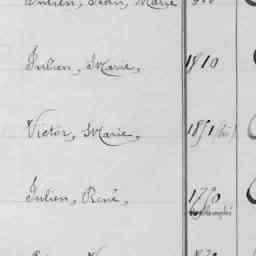 Julien, Jean, Marie
Julien, Marie, 1810
Victor, Marie, 1851 (bis)
Julien, René, 1790